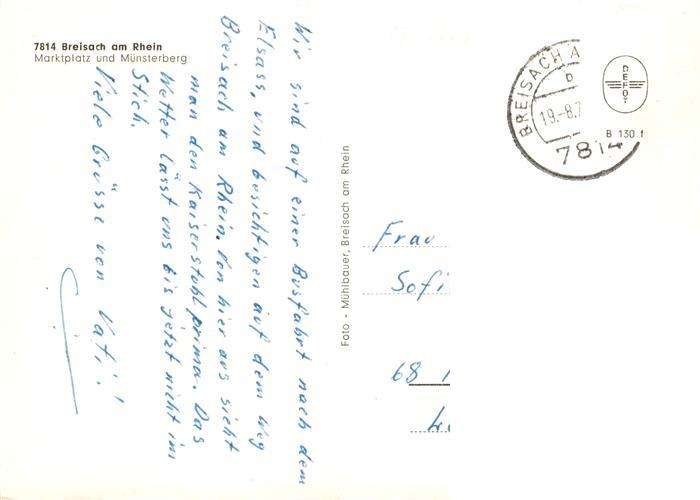 7814 Breisach am Rhein
Marktplatz und Münsterberg
Wir sind auf einer Busfahrt nach dem
Elsass, und besichtigen auf dem Weg
Breisach am Rhein. Von hier aus sieht
man den Kaiserstuhl prima. Das
Wetter lässt uns bis jetzt nicht im
Stich.
Viele Grüsse von Vati!
Foto - Mühlbauer, Breisach am Rhein
BREISACH A
D
19.-8.7
7814
DEPOT
B 130 f
Frau
Sofi
68